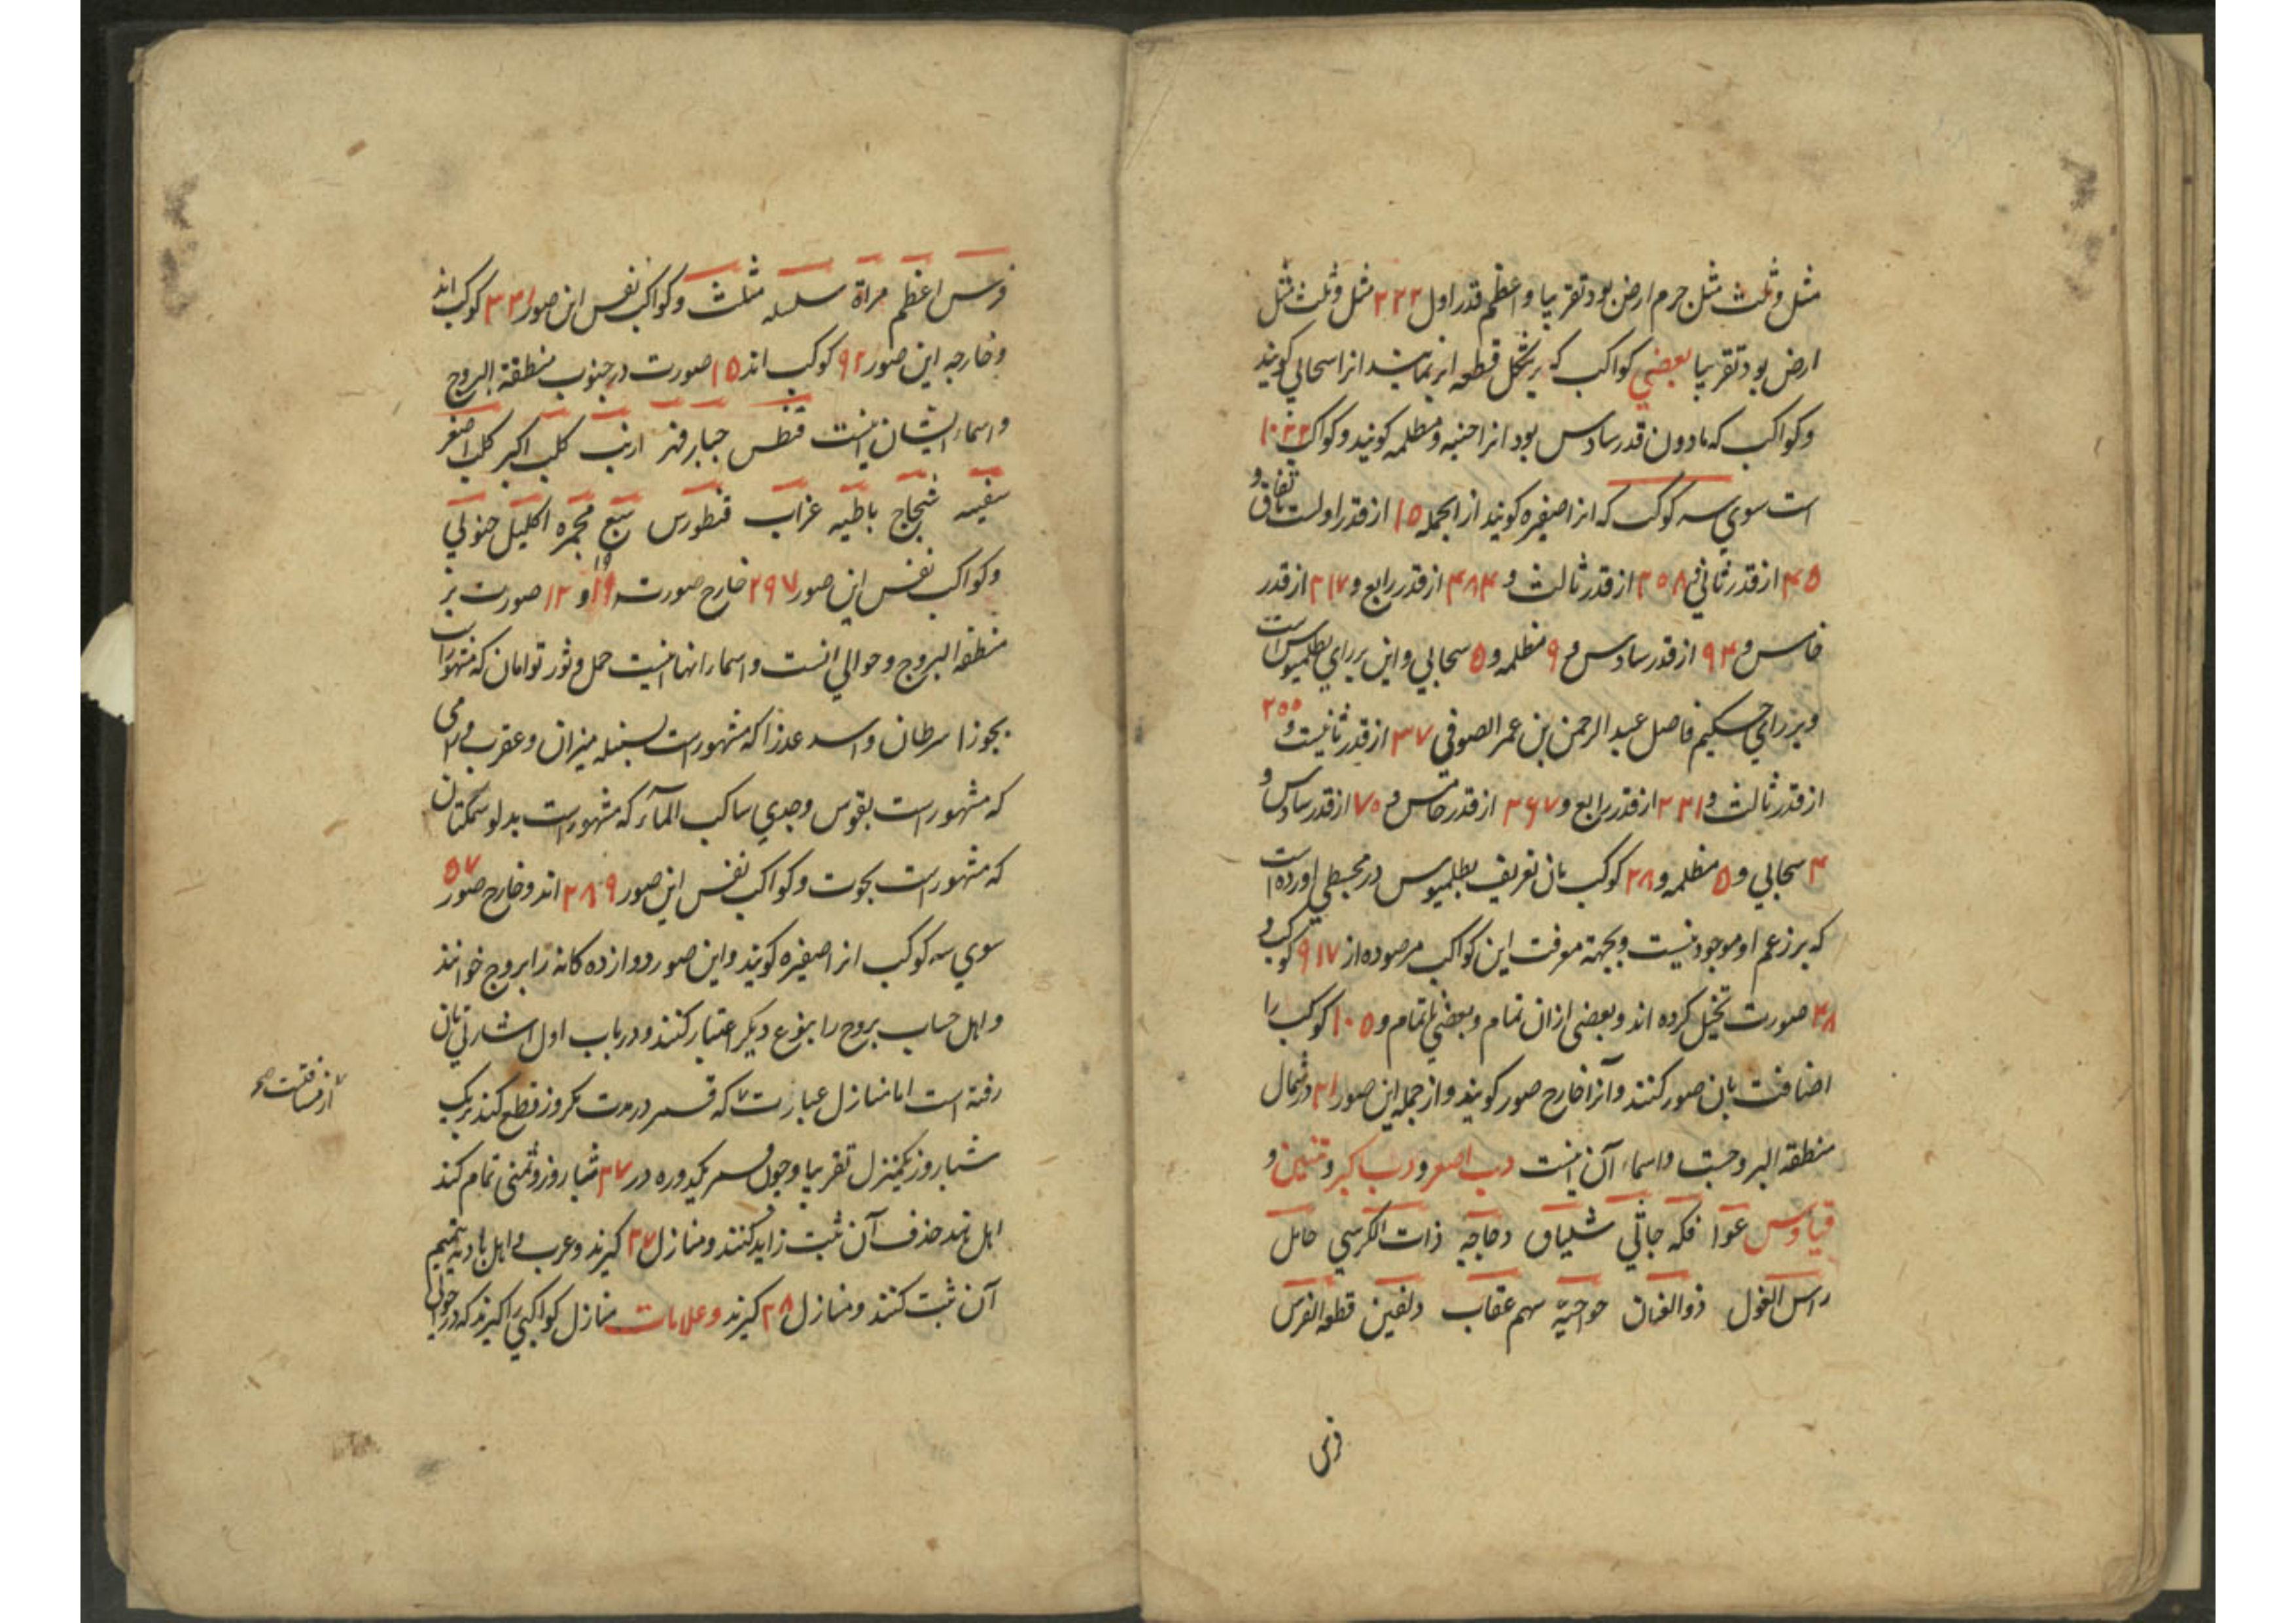 مثل و ثلث مثل جرم ارض بود تقریبا و اعظم قدر اول ۲۲۲ مثل و ثلث مثل
ارض بود تقریبا بعضی کواکب که بر شکل قطعه ابر نماید انرا سحابی کویند
و کواکب که مادون قدر سادس بود انرا خفیه و مظلمه کویند و کواکب ۱۰۲۲
است سوی سه کوکب که انرا صفیره کویند از انجمله ۱۵ از قدر اولست باتفاق و
۴۵ از قدر ثانی و ۲۰۸ از قدر ثالث و ۴۸۴ از قدر رابع و ۲۱۷ از قدر
خامس و ۹۴ از قدر سادس و ۹ مظلمه و ۵ سحابی و این بر رای بطلمیوس است
و بر رای حکیم فاضل عبد الرحمن بن عمر الصوفی ۳۷ از قدر ثانیست و ۲۰۰
از قدر ثالث و ۴۲۱ از قدر رابع و ۲۶۷ از قدر خامس و ۷۰ از قدر سادس و
۴ سحابی و ۵ مظلمه و ۲۸ کوکب بان تعریف بطلمیوس در مجسطی اورده است
که بر زعم او موجود نیست و بجهة معرفت این کواکب مرصوده از ۹۱۷ کوکب و
۴۸ صورت تخیل کرده اند و بعضی ازان تمام و بعضی ناتمام و ۱۰۵ کوکب را
اضافت بان صور کنند و آنرا خارج صور کویند و از جمله این صور ۲۱ در شمال
منطقه البروجست و اسماء آن اینست دب اصغر و دب اکبر و تنین و
قیاوس عوا فکه جاثی شلیاق دجاجه ذات الکرسی حامل
راس الغول ذو العنان حوا حیّه سهم عقاب دلفین قطعه الفرس
فرس
فرس اعظم مراة سلسله مثلث و کواکب نفس این صور ۳۳۱ کوکب اند
و خارجه این صور ۹۲ کوکب اند ۱۵ صورت در جنوب منطقة البروج
و اسماء ایشان اینست قنطس جبار نهر ارنب کلب اکبر کلب اصغر
سفینه شجاع باطیه غراب قنطورس سبع مجمره اکلیل جنوبی
و کواکب نفس این صور ۲۹۷ خارج صورت ۱۹ و ۱۲ صورت بر
منطقه البروج و حوالی انست و اسماء انها اینست حمل و ثور توامان که مشهور است
بجوزا سرطان و اسد عذرا که مشهور است بسنبله میزان و عقرب و رامی
که مشهور است بقوس و جدی ساکب المآء که مشهور است بدلو سمکتان
که مشهور است بحوت و کواکب نفس این صور ۲۸۹ اند و خارج صور ۵۷
سوی سه کوکب انرا صفیره کویند و این صور دوازده کانه را بروج خوانند
و اهل حساب بروج را بنوع دیکر اعتبار کنند و در باب اول اشارتی بان
رفته است اما منازل عبارتست که قمر در مدت یکروز قطع کند بریک
از مسافتست صح
شبا روز یکمنزل تقریبا و چون قمر یکدوره در ۲۷ شبا روز و ثمنی تمام کند
اهل هند حذف آن ثبت زاید کنند و منازل ۲۷ کیرند و عرب و اهل بادیه تتمیم
آن ثبت کنند و منازل ۲۸ کیرند و علامات منازل کواکبی را کیرند که در حوالی